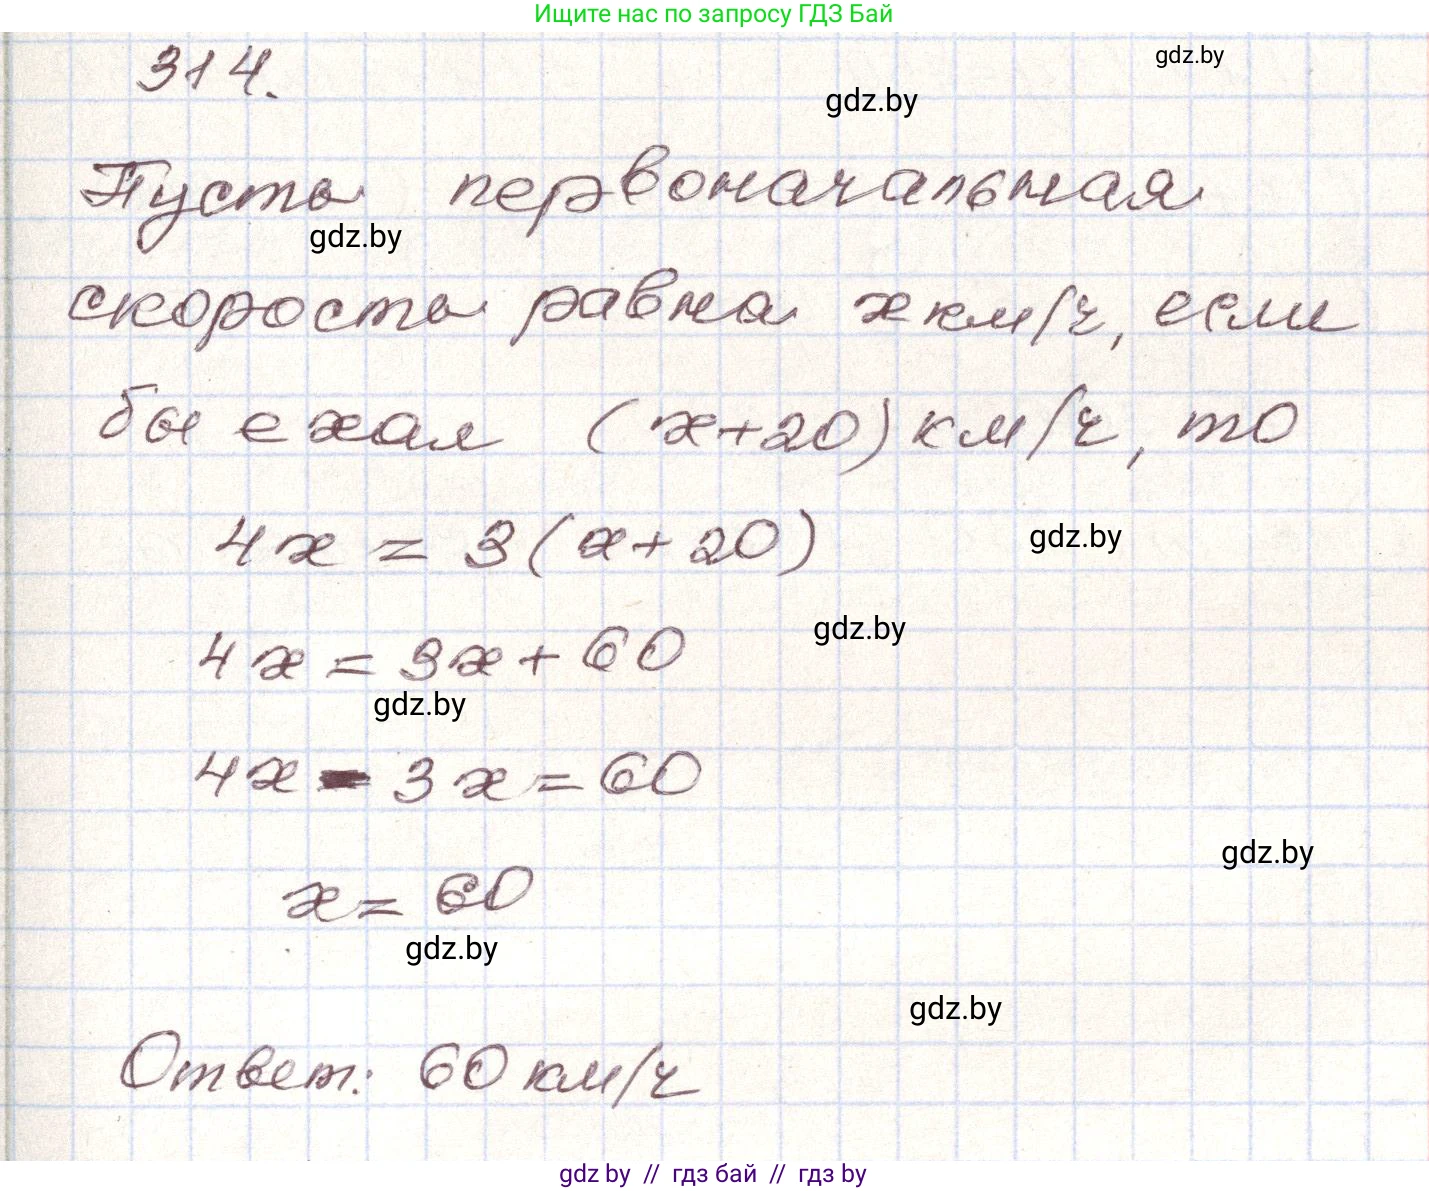 Ищите нас по запросу ГДЗ Бай
314.
gdz.by
gdz.by
Пусть первоначальная
gdz.by
скорость равна x км/ч, если
бы ехал (x+20) км/ч, то
4x = 3(x+20)
gdz.by
4x = 3x + 60
gdz.by
gdz.by
4x - 3x = 60
gdz.by
x = 60
gdz.by
gdz.by
Ответ: 60 км/ч
gdz by // гдз бай // гдз by